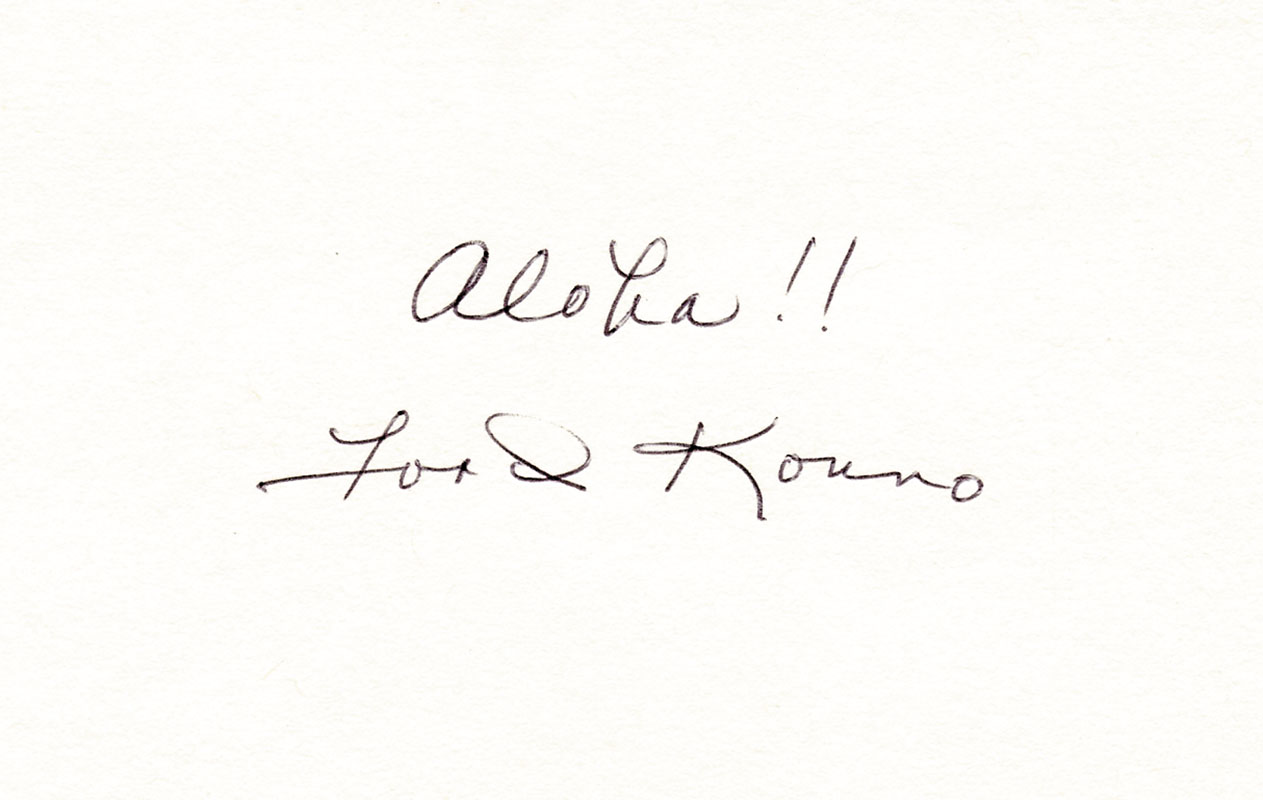 Aloha!!
Ford Konno